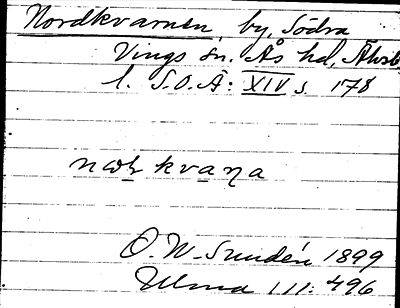 Nordkvarnen, by, Södra
Vings sn. Ås hd, Älvsb.
l. S.O.Ä: XIV s 178
kvaŋa
O.W. Sundén 1899
Ulma 111: 496